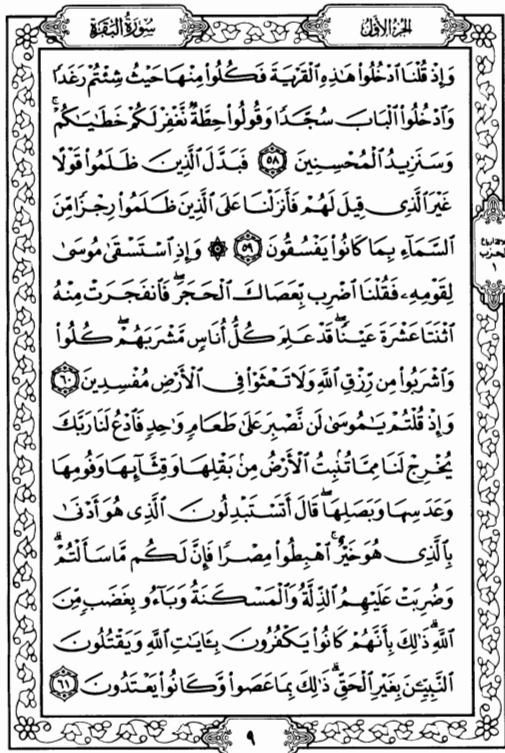 سُورَةُ البَقَرَةِ
الجُزْءُ الأَوَّلُ
وَإِذْ قُلْنَا ٱدْخُلُوا۟ هَٰذِهِ ٱلْقَرْيَةَ فَكُلُوا۟ مِنْهَا حَيْثُ شِئْتُمْ رَغَدًا
وَٱدْخُلُوا۟ ٱلْبَابَ سُجَّدًا وَقُولُوا۟ حِطَّةٌ نَّغْفِرْ لَكُمْ خَطَٰيَٰكُمْ ۚ
وَسَنَزِيدُ ٱلْمُحْسِنِينَ ٥٨ فَبَدَّلَ ٱلَّذِينَ ظَلَمُوا۟ قَوْلًا
غَيْرَ ٱلَّذِى قِيلَ لَهُمْ فَأَنزَلْنَا عَلَى ٱلَّذِينَ ظَلَمُوا۟ رِجْزًا مِّنَ
ٱلسَّمَآءِ بِمَا كَانُوا۟ يَفْسُقُونَ ٥٩ ۞ وَإِذِ ٱسْتَسْقَىٰ مُوسَىٰ
لِقَوْمِهِۦ فَقُلْنَا ٱضْرِب بِّعَصَاكَ ٱلْحَجَرَ ۖ فَٱنفَجَرَتْ مِنْهُ
ٱثْنَتَا عَشْرَةَ عَيْنًا ۖ قَدْ عَلِمَ كُلُّ أُنَاسٍ مَّشْرَبَهُمْ ۖ كُلُوا۟
وَٱشْرَبُوا۟ مِن رِّزْقِ ٱللَّهِ وَلَا تَعْثَوْا۟ فِى ٱلْأَرْضِ مُفْسِدِينَ ٦٠
وَإِذْ قُلْتُمْ يَٰمُوسَىٰ لَن نَّصْبِرَ عَلَىٰ طَعَامٍ وَٰحِدٍ فَٱدْعُ لَنَا رَبَّكَ
يُخْرِجْ لَنَا مِمَّا تُنۢبِتُ ٱلْأَرْضُ مِنۢ بَقْلِهَا وَقِثَّآئِهَا وَفُومِهَا
وَعَدَسِهَا وَبَصَلِهَا ۖ قَالَ أَتَسْتَبْدِلُونَ ٱلَّذِى هُوَ أَدْنَىٰ
بِٱلَّذِى هُوَ خَيْرٌ ۚ ٱهْبِطُوا۟ مِصْرًا فَإِنَّ لَكُم مَّا سَأَلْتُمْ ۗ
وَضُرِبَتْ عَلَيْهِمُ ٱلذِّلَّةُ وَٱلْمَسْكَنَةُ وَبَآءُو بِغَضَبٍ مِّنَ
ٱللَّهِ ۗ ذَٰلِكَ بِأَنَّهُمْ كَانُوا۟ يَكْفُرُونَ بِـَٔايَٰتِ ٱللَّهِ وَيَقْتُلُونَ
ٱلنَّبِيِّـۧنَ بِغَيْرِ ٱلْحَقِّ ۗ ذَٰلِكَ بِمَا عَصَوا۟ وَّكَانُوا۟ يَعْتَدُونَ ٦١
الحزب
١
٩